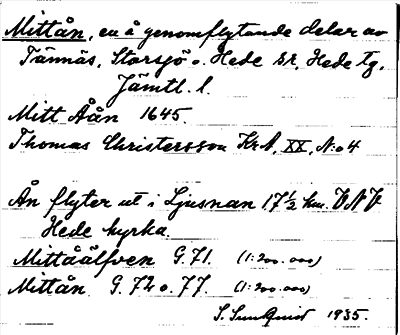 Mittån, en å genomflytande delar av
Tännäs, Storsjö o. Hede sr, Hede tg,
Jämtl. l.
Mitt Åån 1645.
Thomas Christersson KrA, XX, No 4
Ån flyter ut i Ljusnan 17½ km. VNV
Hede kyrka.
Mittåälfven G. 71. (1:200.000)
Mittån G. 72 o. 77. (1:200.000)
S. Sundquist 1935.